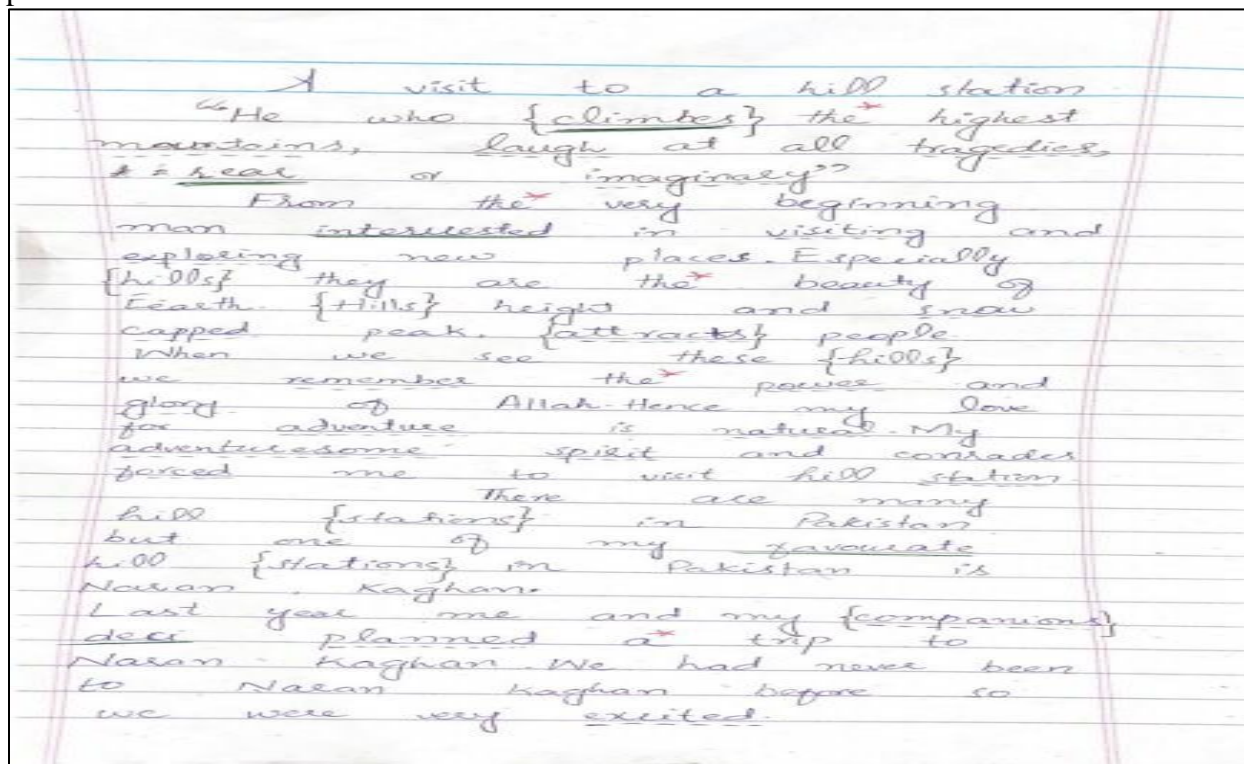 A visit to a hill station
"He who {climbes} the highest
mountains, laugh at all tragedies,
real or imaginary"
From the very beginning
man interuested in visiting and
exploring new places. Especially
{hills} they are the beauty of
Eearth. {Hills} height and snow
capped peak. {attracts} people.
When we see these {hills}
we remember the power and
glory of Allah. Hence my love
for adventure is natural. My
adventuresome spirit and comrades
forced me to visit hill station.
There are many
hill {stations} in Pakistan
but one of my favourate
hill {stations} in Pakistan is
Naran . Kaghan.
Last year me and my {companions}
deci planned a trip to
Naran - Kaghan. We had never been
to Naran Kaghan before so
we were very excited.